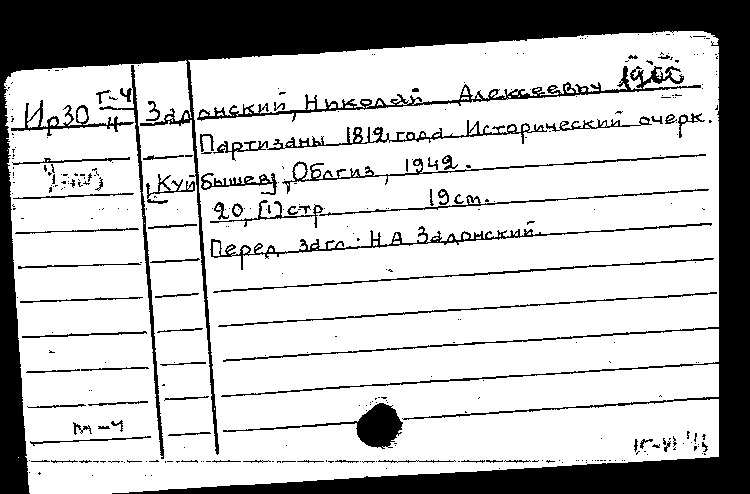 Ир30 Т-4/4 Задонский, Николай Алексеевич 1900
Партизаны 1812 года. Исторический очерк.
[Куйбышев], Облгиз, 1942.
20, [1] стр. 19 см.
Перед загл.: Н.А Задонский.